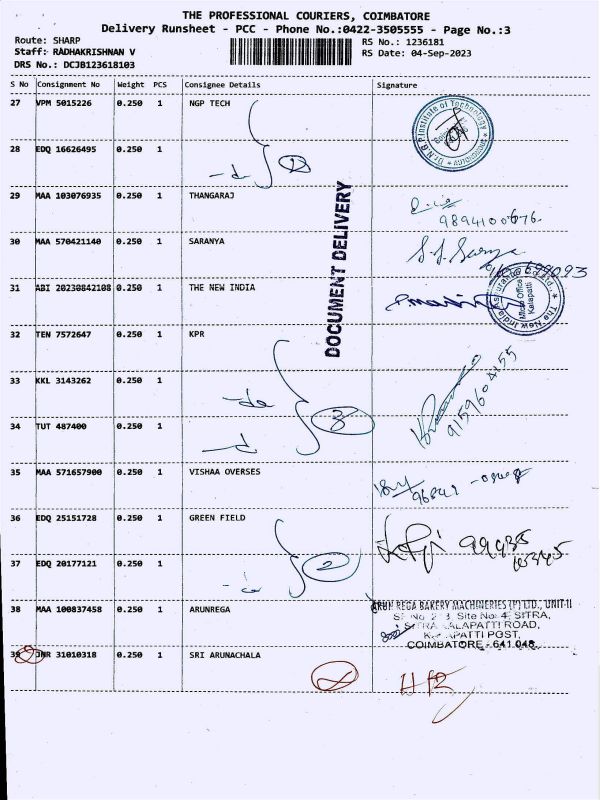 THE PROFESSIONAL COURIERS, COIMBATORE
Delivery Runsheet - PCC - Phone No.:0422-3505555 - Page No.:3
Route: SHARP
RS No.: 1236181
Staff: RADHAKRISHNAN V
RS Date: 04-Sep-2023
DRS No.: DCJB123618103
S No Consignment No Weight PCS Consignee Details Signature
27 VPM 5015226 0.250 1 NGP TECH
28 EDQ 16626495 0.250 1
2
29 MAA 103076935 0.250 1 THANGARAJ
9894100676
30 MAA 570421140 0.250 1 SARANYA
DOCUMENT DELIVERY
31 ABI 20230842108 0.250 1 THE NEW INDIA
Micro Office
Kalapatti
32 TEN 7572647 0.250 1 KPR
33 KKL 3143262 0.250 1
3
34 TUT 487400 0.250 1
35 MAA 571657900 0.250 1 VISHAA OVERSES
36 EDQ 25151728 0.250 1 GREEN FIELD
37 EDQ 20177121 0.250 1
2
38 MAA 100837458 0.250 1 ARUNREGA
ARUN REGA BAKERY MACHINERIES (P) LTD., UNIT-II
Site No: 4, SITRA,
SITRA KALAPATTI ROAD,
KALAPATTI POST,
COIMBATORE - 641 048.
39 JNR 31010318 0.250 1 SRI ARUNACHALA